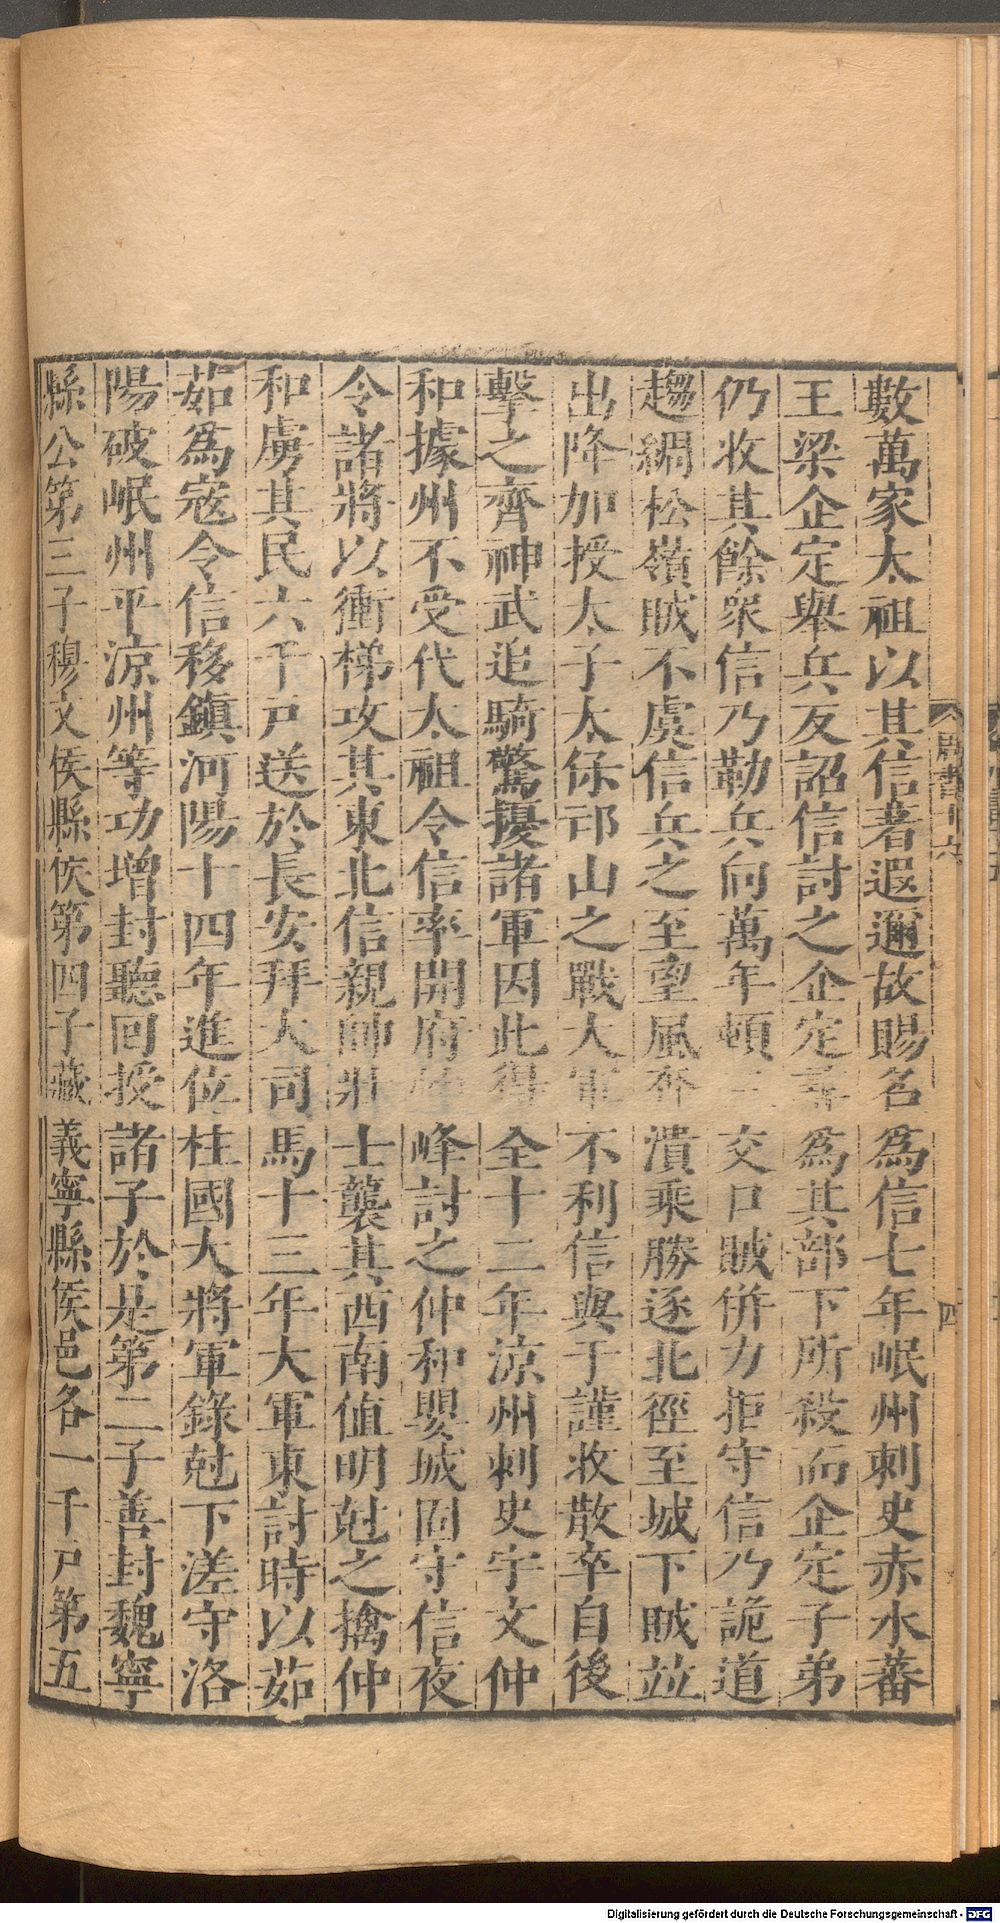 數萬家太祖以其信著遐邇故賜名爲信七年岷州刺史赤水蕃
王梁企定舉兵反詔信討之企定尋爲其部下所殺而企定子弟
仍收其餘衆信乃勒兵向萬年頓三交口賊併力拒守信乃詭道
趨綢松嶺賊不虞信兵之至望風奔潰乘勝逐北徑至城下賊並
出降加授太子太保邙山之戰大軍不利信與于謹收散卒自後
擊之齊神武追騎驚擾諸軍因此得全十二年涼州刺史宇文仲
和據州不受代太祖令信率開府怡峰討之仲和嬰城固守信夜
令諸將以衝梯攻其東北信親帥壯士襲其西南值明尅之擒仲
和虜其民六千戸送於長安拜大司馬十三年大軍東討時以茹
茹爲寇令信移鎭河陽十四年進位柱國大將軍錄尅下溠守洛
陽破岷州平涼州等功增封聽回授諸子於是第二子善封魏寧
縣公第三子穆文侯縣侯第四子藏義寧縣侯邑各一千戸第五
周書十六
四
Digitalisierung gefördert durch die Deutsche Forschungsgemeinschaft - DFG